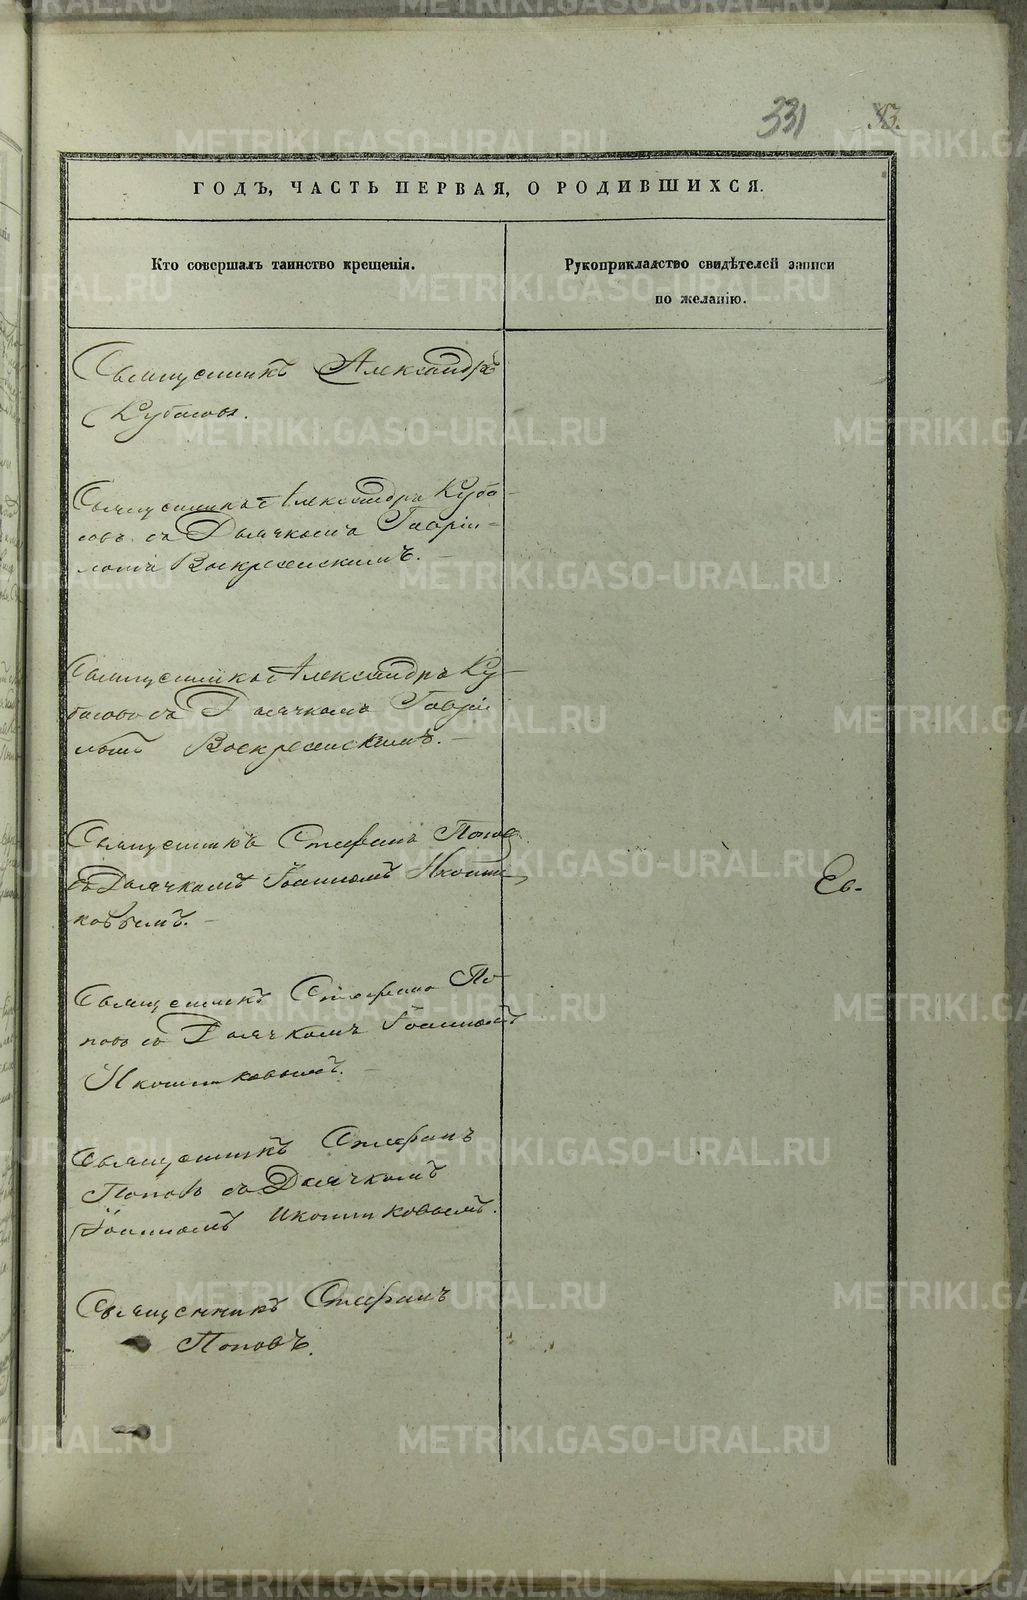 331
ГОДЪ, ЧАСТЬ ПЕРВАЯ, О РОДИВШИХСЯ.
Кто совершалъ таинство крещенія.
Рукоприкладство свидѣтелей записи
по желанію.
Священникъ Александръ
Кубасовъ.
Священникъ Александръ Куба-
совъ съ Дьячкомъ Гаврі-
ломъ Воскресенскимъ. -
Священникъ Александръ Ку-
басовъ съ Дьячкомъ Гаврі
ломъ Воскресенскимъ. -
Священникъ Стефанъ Поповъ
съ Дьячкомъ Іоанномъ Иконни-
ковымъ. -
Ев-
Священникъ Стефанъ По-
повъ съ Дьячкомъ Іоанномъ
Иконниковымъ. -
Священникъ Стефанъ
Поповъ съ Дьячкомъ
Іоанномъ Иконниковымъ.
Священникъ Стефанъ
Поповъ.
METRIKI.GASO-URAL.RU